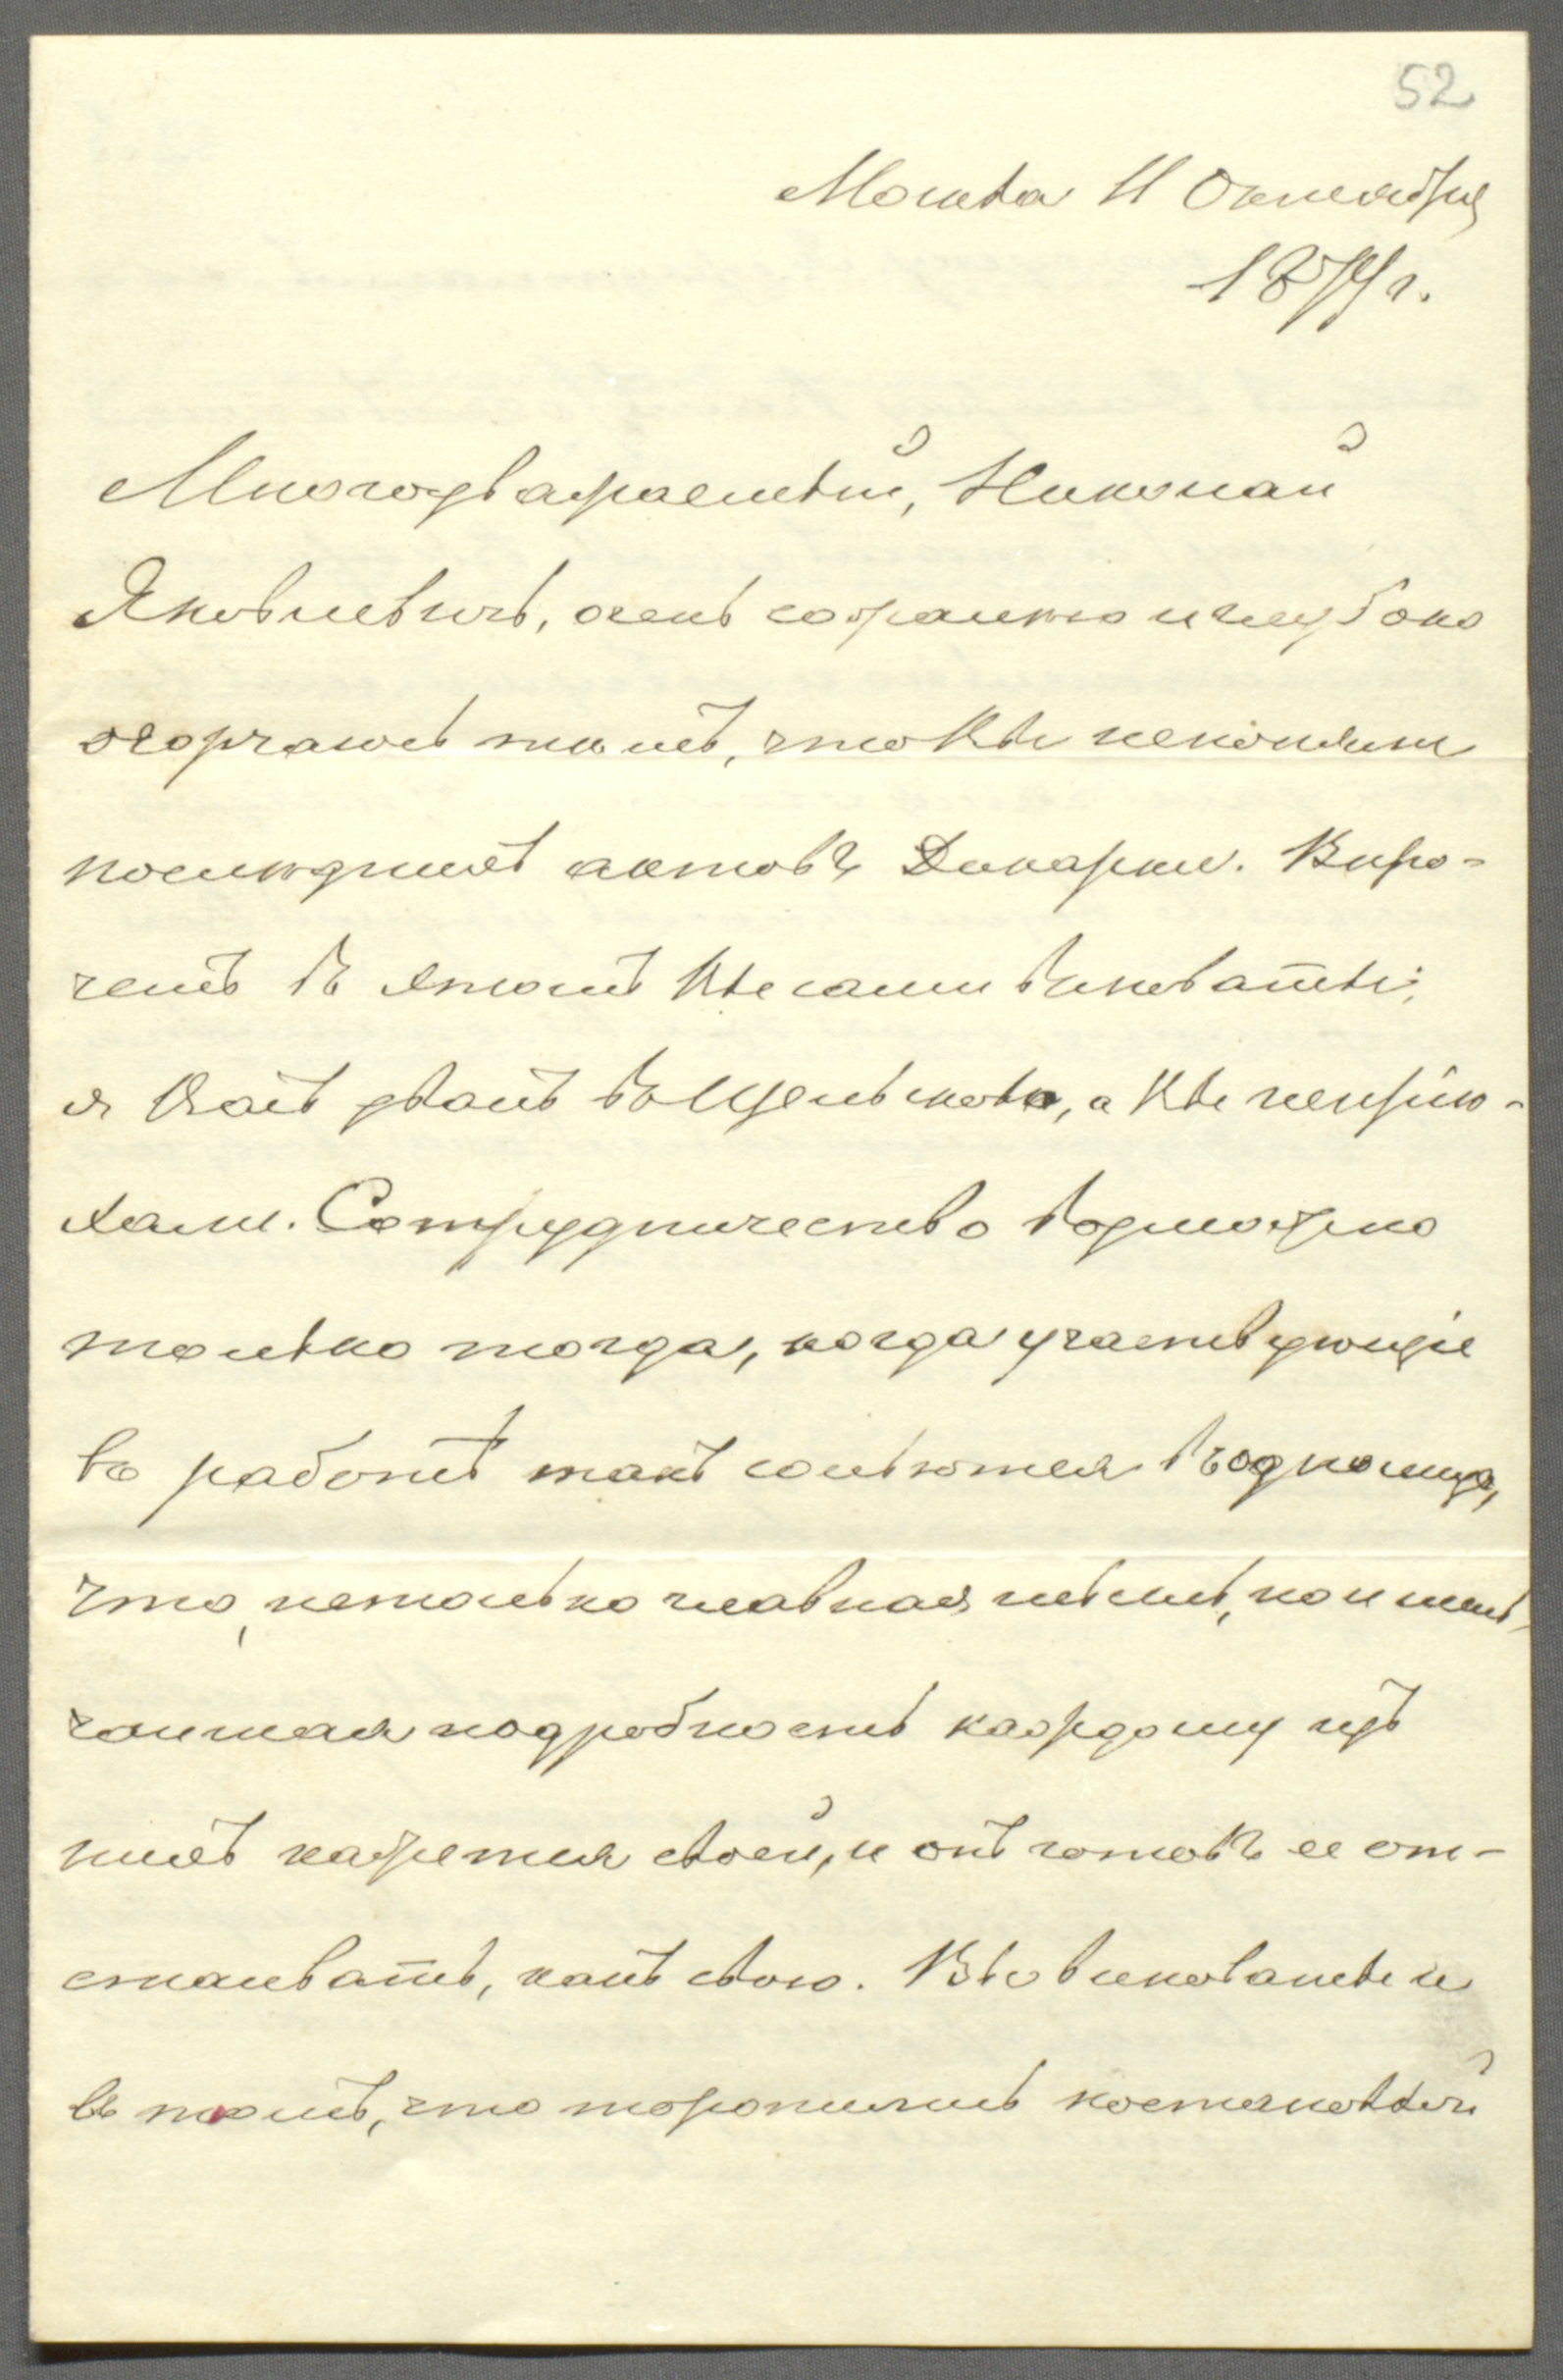 52
Москва 11 Октября
1879 г.
Многоуважаемый, Николай
Яковлевичъ, очень сожалѣю и глубоко
огорчаюсь тѣмъ, что Вы не поняли
послѣднихъ актовъ Дикарки. Впро-
чемъ въ этомъ Вы сами виноваты;
я Васъ звалъ въ Щелыково, а Вы не прiѣ-
хали. Сотрудничество возможно
только тогда, когда участвующiе
въ работѣ такъ сольются въ одно лицо,
что, не только главная мысль, но и мель-
чайшая подробность каждому изъ
нихъ кажется своей, и онъ готовъ ее от-
стаивать, какъ свою. Вы виноваты и
въ томъ, что торопились постановкой